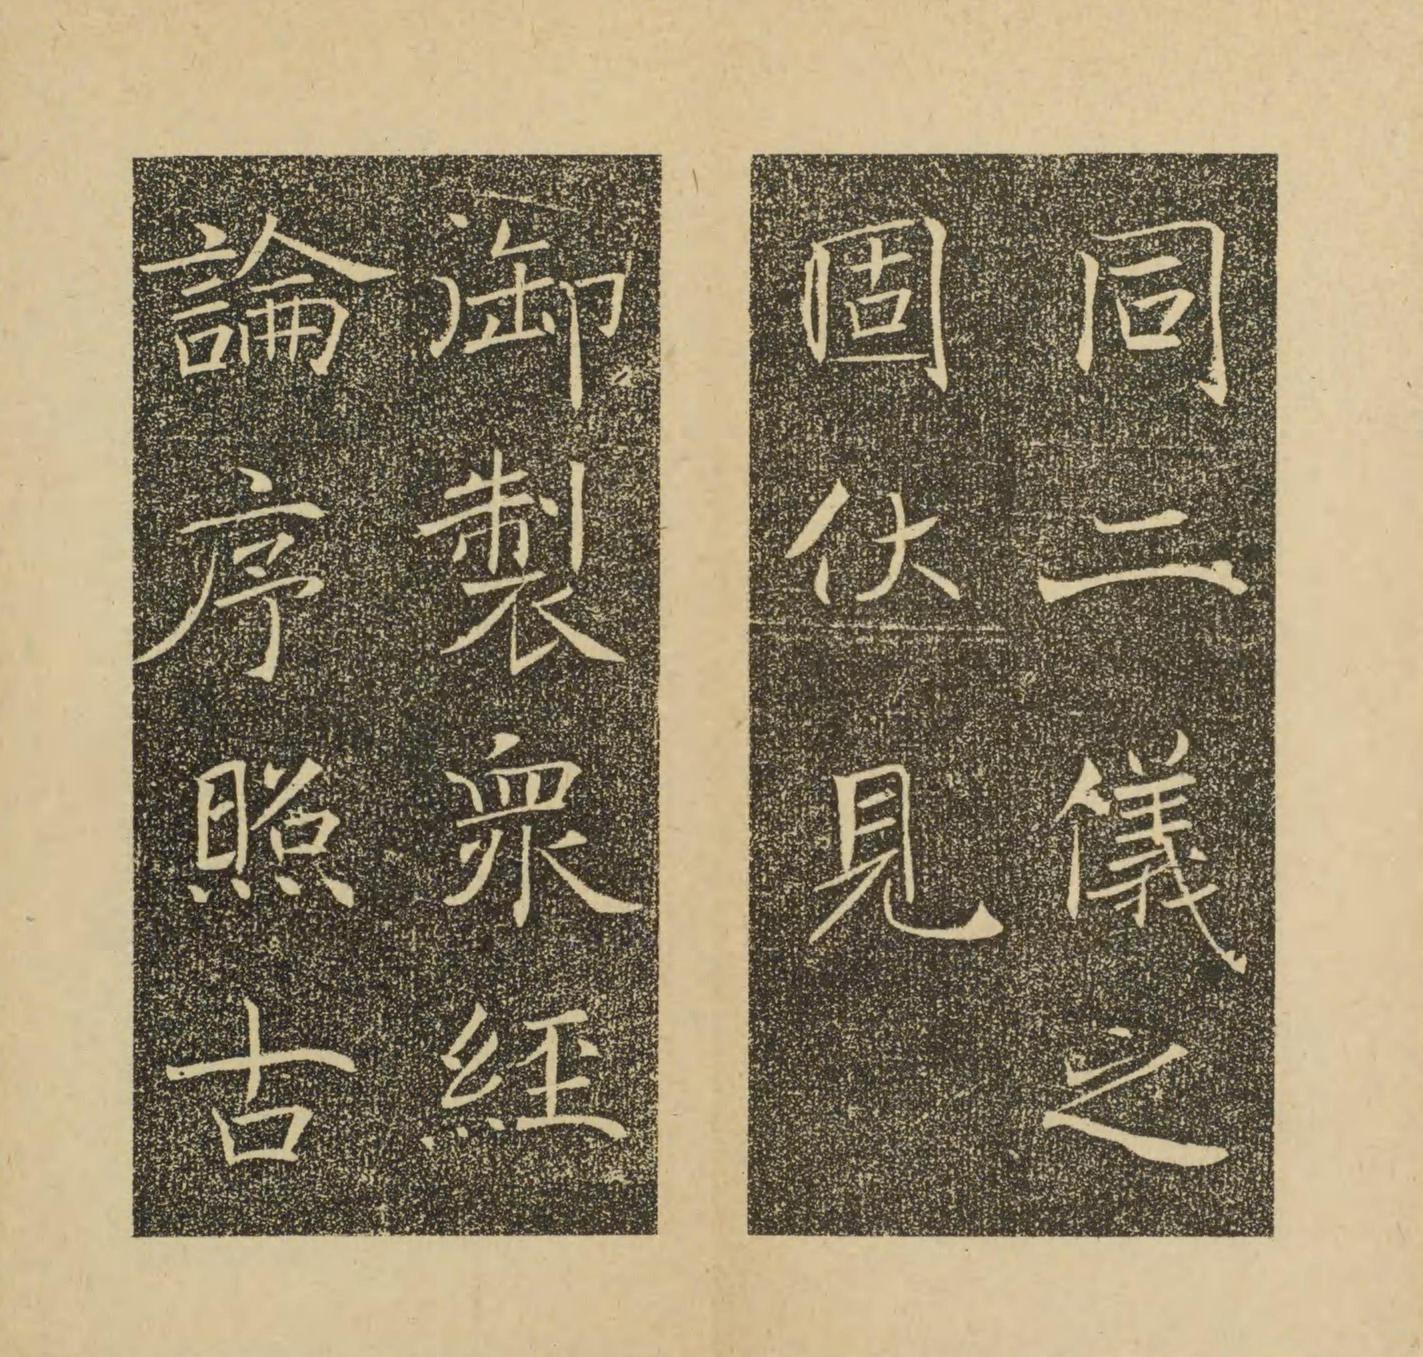 同二儀之
固伏見
御製衆經
論序照古